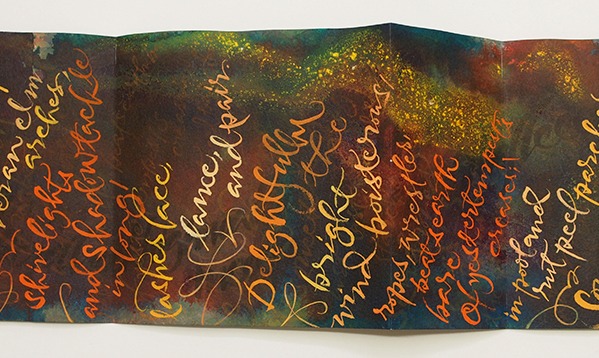 ver an elm
arches,
Shivelights
and shadowtackle
in long
lashes lace,
lance,
and pair.
Delightfully
the
bright
wind boisterous,
ropes, wrestles,
beats earth
bare
Of yestertempest's
creases;
in pool and
rut peel parches